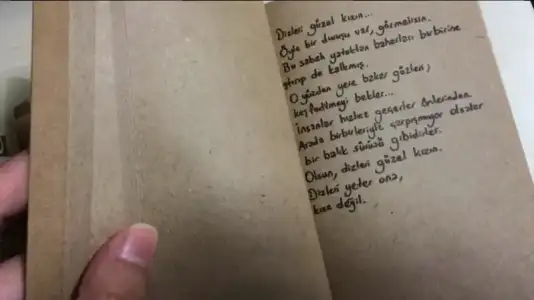 Dizleri güzel kızın...
Öyle bir duruşu var, görmelisin.
Bu sabah yataktan baharları birbirine
katıp da kalkmış.
O yüzden yere bakar gözleri,
keşfedilmeyi bekler...
İnsanlar hızlıca geçerler önlerinden
Arada birbirleriyle çarpışmıyor olsalar
bir balık sürüsü gibidirler.
Olsun, dizleri güzel kızın.
Dizleri yeter ona,
kısa değil.